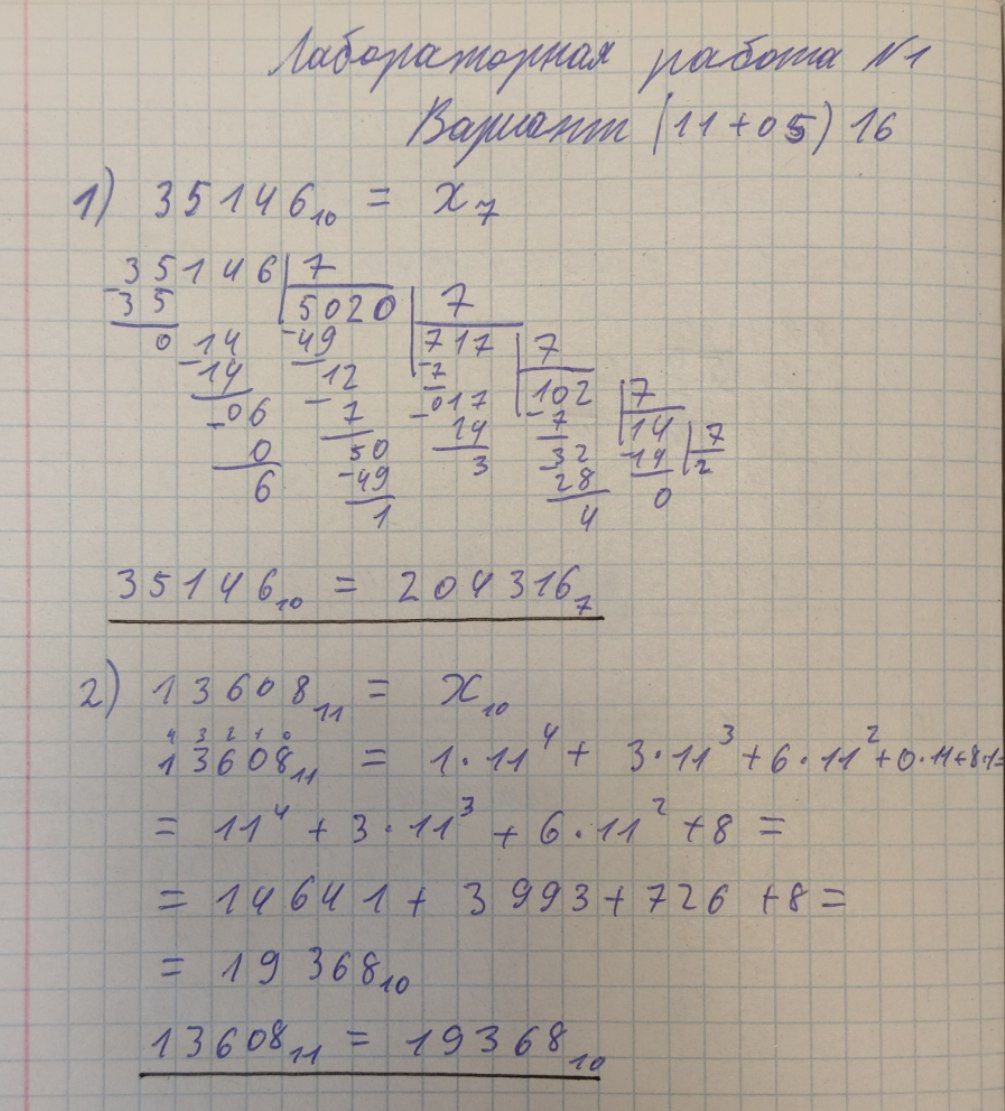 Лабораторная работа №1
Вариант (11+05) 16
1) 35146₁₀ = x₇
35146 | 7
-35 | 5020 | 7
0 -14 -49 | 717 | 7
14 12 -7 | 102 | 7
-06 -7 -017 -7 | 14 | 7
0 50 14 -32 -14 | 2
6 -49 3 28 0
1 4
35146₁₀ = 204316₇
2) 13608₁₁ = x₁₀
4 3 2 1 0
13608₁₁ = 1·11⁴ + 3·11³ + 6·11² + 0·11 + 8·1=
= 11⁴ + 3·11³ + 6·11² + 8 =
= 14641 + 3993 + 726 + 8 =
= 19368₁₀
13608₁₁ = 19368₁₀